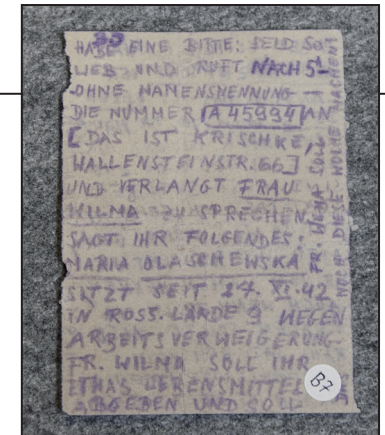 HABE EINE BITTE: SEID SO
LIEB UND RUFT NACH 5ʰ
OHNE NAMENSNENNUNG
DIE NUMMER A 45994 AN
[DAS IST KRISCHKE,
WALLENSTEINSTR. 66]
UND VERLANGT FRAU
WILMA ZU SPRECHEN
SAGT IHR FOLGENDES:
MARIA OLASCHEWSKA
SITZT SEIT 27. XI. 42
IN ROSS. LÄNDE 9 WEGEN
ARBEITSVERWEIGERUNG
FR. WILMA SOLL IHR
ETWAS LEBENSMITTEL
ABGEBEN UND SOLL
FR. WILMA SOLL
DIESE WOCHE MACHEN!
B7